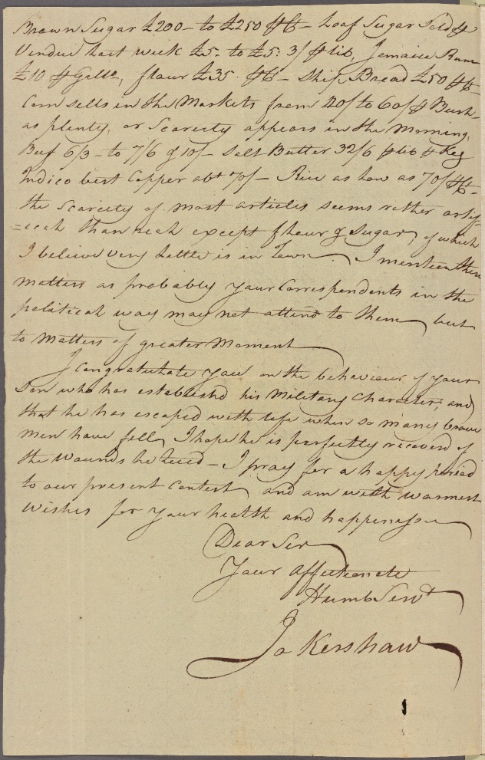 Brown Sugar £200 – to £250 ⅌ Ct – Loaf Sugar Sold @
Vendue last week £5 – to £5.3/ ⅌ lib, Jamaica Rum
£10 ⅌ Gallo, flour £35 ⅌ Ct – Ship Bread £50 ⅌ Ct –
Corn sells in the Markets from 40/ to 60/ ⅌ Bush
as plenty, or Scarcity appears in the Morning,
Beef 6/3 – to 7/6 & 10/ – Salt Butter 32/6 ⅌ lib ⅌ Keg
Indico best Copper abt 70/ – Rice as low as 70/ ⅌ Ct –
the Scarcity of most articles seems rather artifi-
=ceal than real except flour & Sugar, of which
I believe very little is in Town – I mention these
matters as probably your Correspondents in the
political way may not attend to them – but
to matters of greater Moment –
I Congratulate you on the behaviour of your
Son who has established his Military Character, and
that he has escaped with life when so many brave
men have fell, I hope he is perfectly recoverd of
the wounds he Recd – I pray for a happy period
to our present Contest and am with warmest
wishes for your health and happiness –
Dear Sir
Your Affectionate
Humb Servt
Jo Kershaw